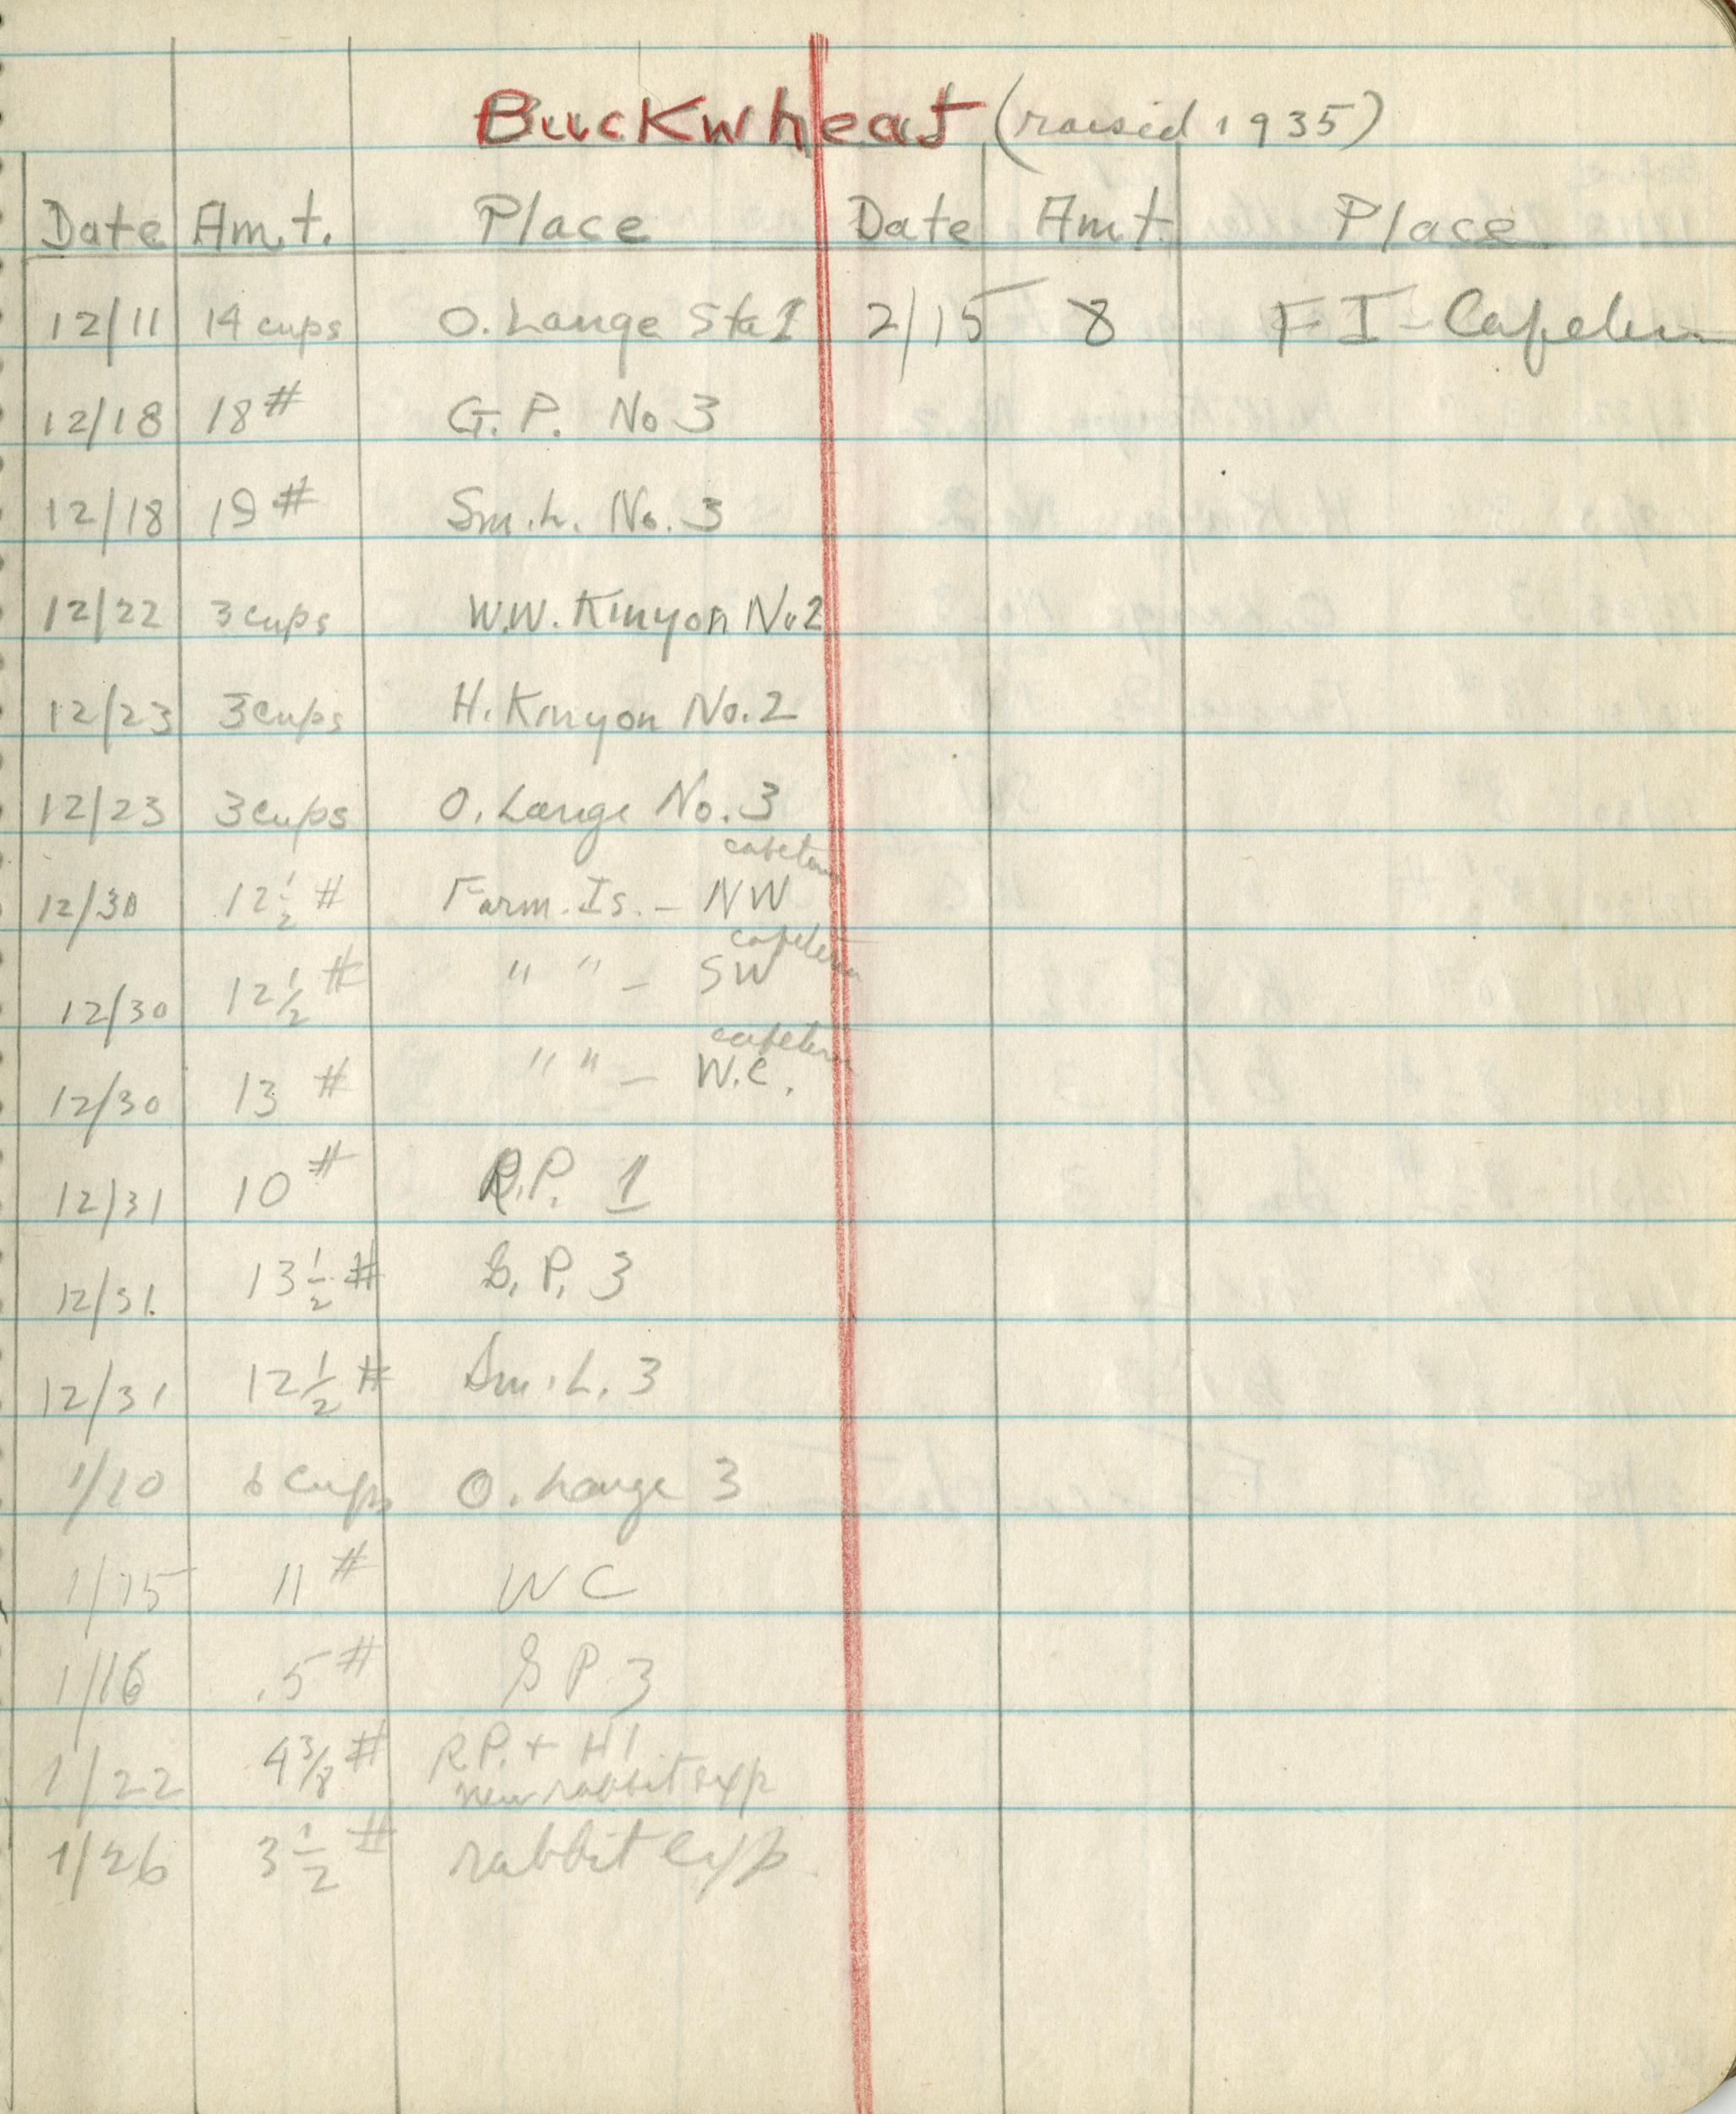 Buckwheat (raised 1935)
Date Amt. Place Date Amt. Place
12/11 14 cups O. Lange Sta 1 2/15 8 F I - Cafeteria
12/18 18 # G. P. No 3
12/18 19 # Sm. L. No. 3
12/22 3 cups W.W. Kinyon No 2
12/23 3 cups H. Kinyon No. 2
12/23 3 cups O. Lange No. 3
cafeteria
12/30 12 1/2 # Farm. Is. - NW
cafeteria
12/30 12 1/2 # " " - SW
cafeteria
12/30 13 # " " - W.C.
12/31 10 # R.P. 1
12/31. 13 1/2 # G. P. 3
12/31 12 1/2 # Sm. L. 3
1/10 6 Cups O. Lange 3
1/15 11 # W C
1/16 .5 # G P 3
1/22 4 3/8 # R.P. + H1
new rabbit exp
1/26 3 1/2 # rabbit exp.